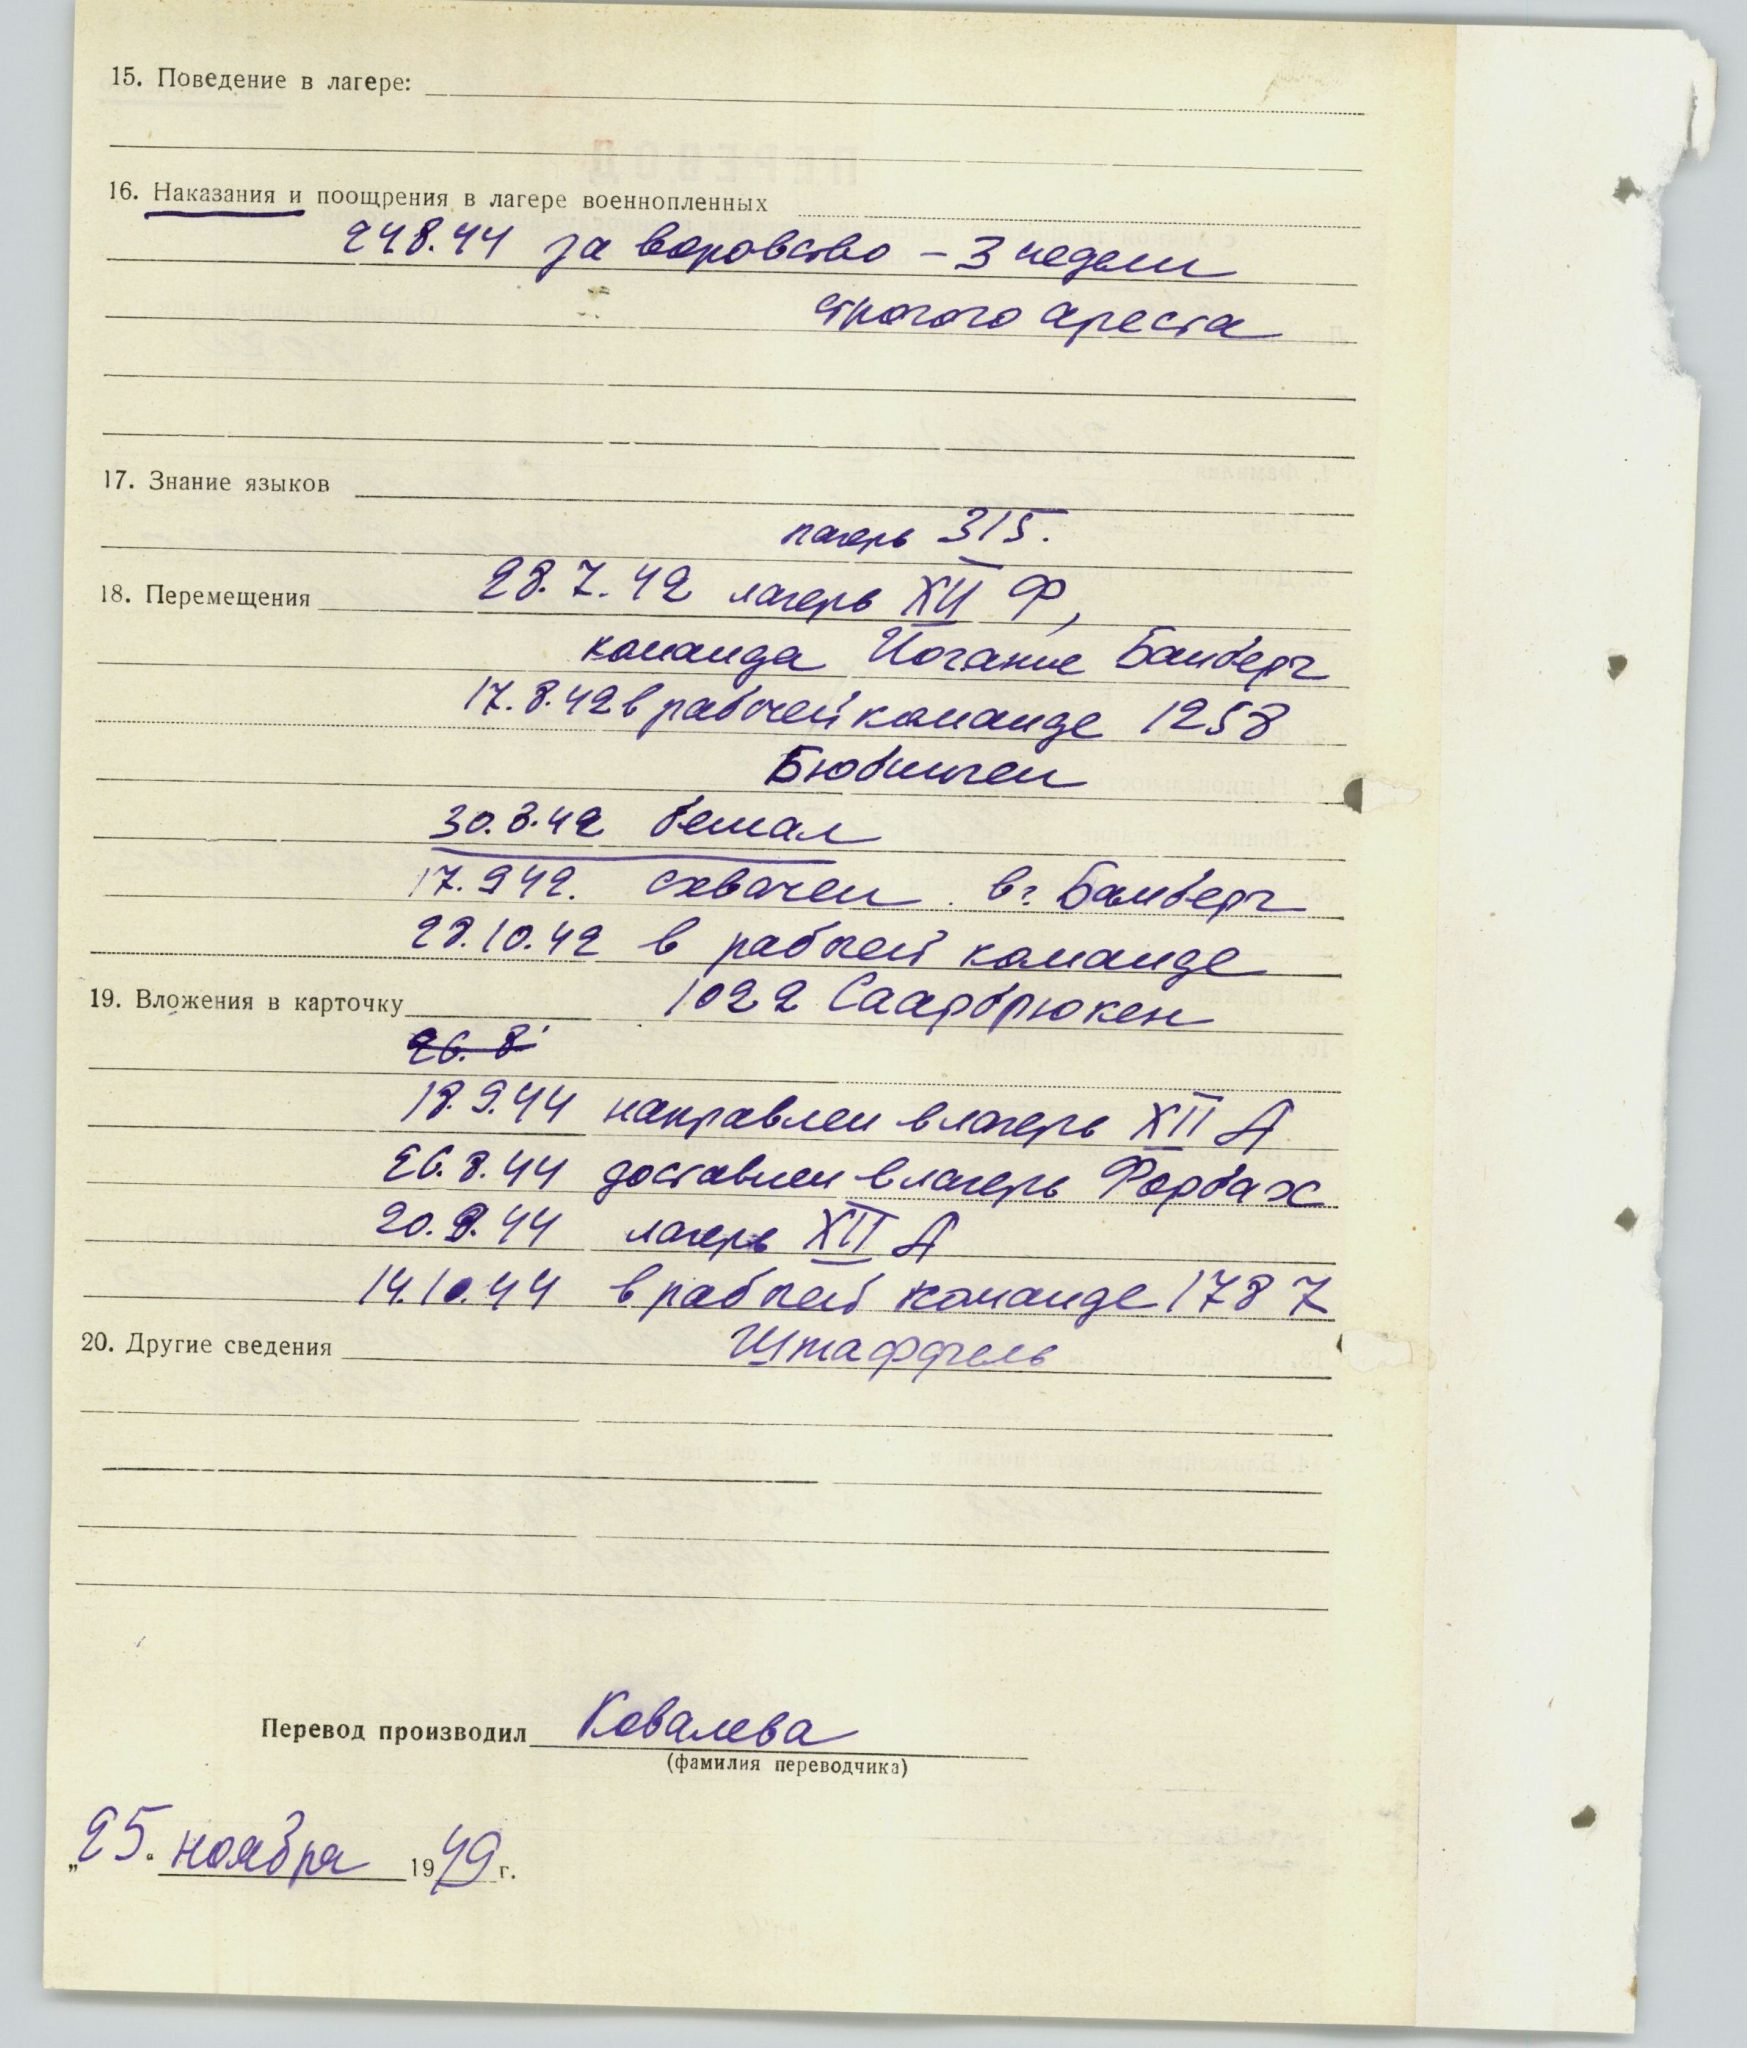 15. Поведение в лагере:
16. Наказания и поощрения в лагере военнопленных
248.44 за воровство – 3 недели
строгого ареста
17. Знание языков
лагерь 315.
18. Перемещения 28.7.42 лагерь XII Ф,
команда Иоганис Бамберг
17.8.42 в рабочей команде 1258
Бюбинген
30.8.42 бежал
17.942. схвачен в г. Бамберг
28.10.42 в рабочей команде
19. Вложения в карточку 1022 Саарбрюкен
26. 8
18.9.44 направлен в лагерь XII А
26.8.44 доставлен в лагерь Форбах
20.9.44 лагерь XII А
14.10.44 в рабочей команде 1787
20. Другие сведения Штаффель
Перевод производил Ковалева
(фамилия переводчика)
„25." ноября 1949 г.